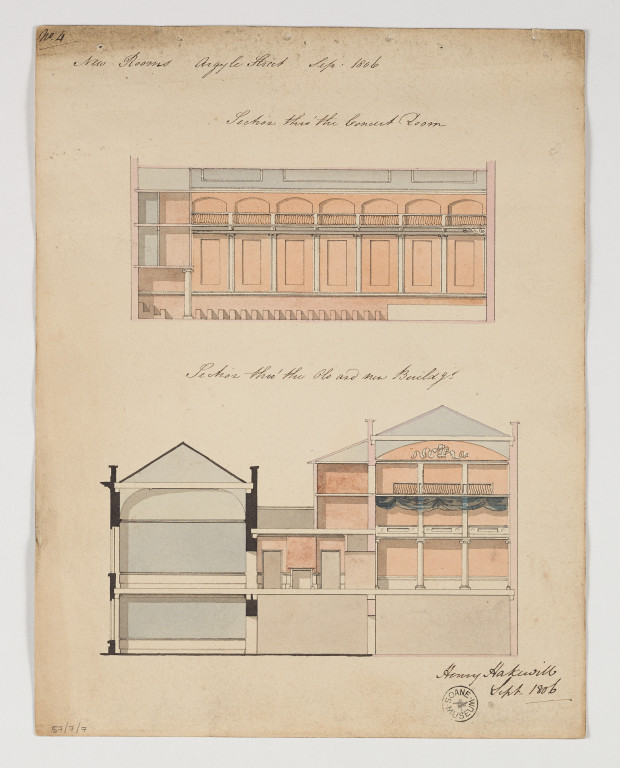 No. 4
New Rooms Argyle Street Sep. 1806
Section thro' the Concert Room
Section thro' the Old and new Buildgs.
Henry Hakewill
Sept. 1806
SOANE MUSEUM
57/7/7